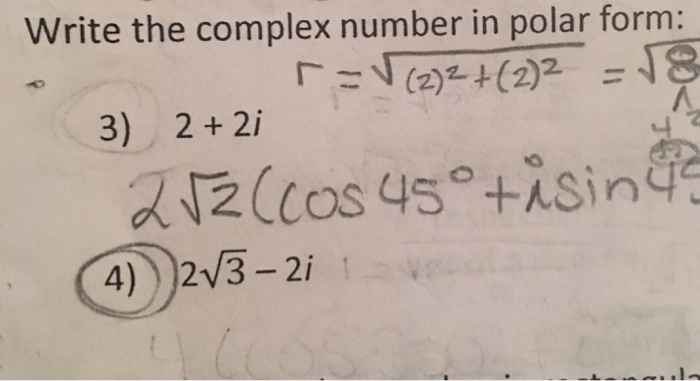 Write the complex number in polar form:
r = √(2)² + (2)² = √8
4 2
3) 2 + 2i
2√2 (cos 45° + i sin 45
4) 2√3 – 2i
4 (cos